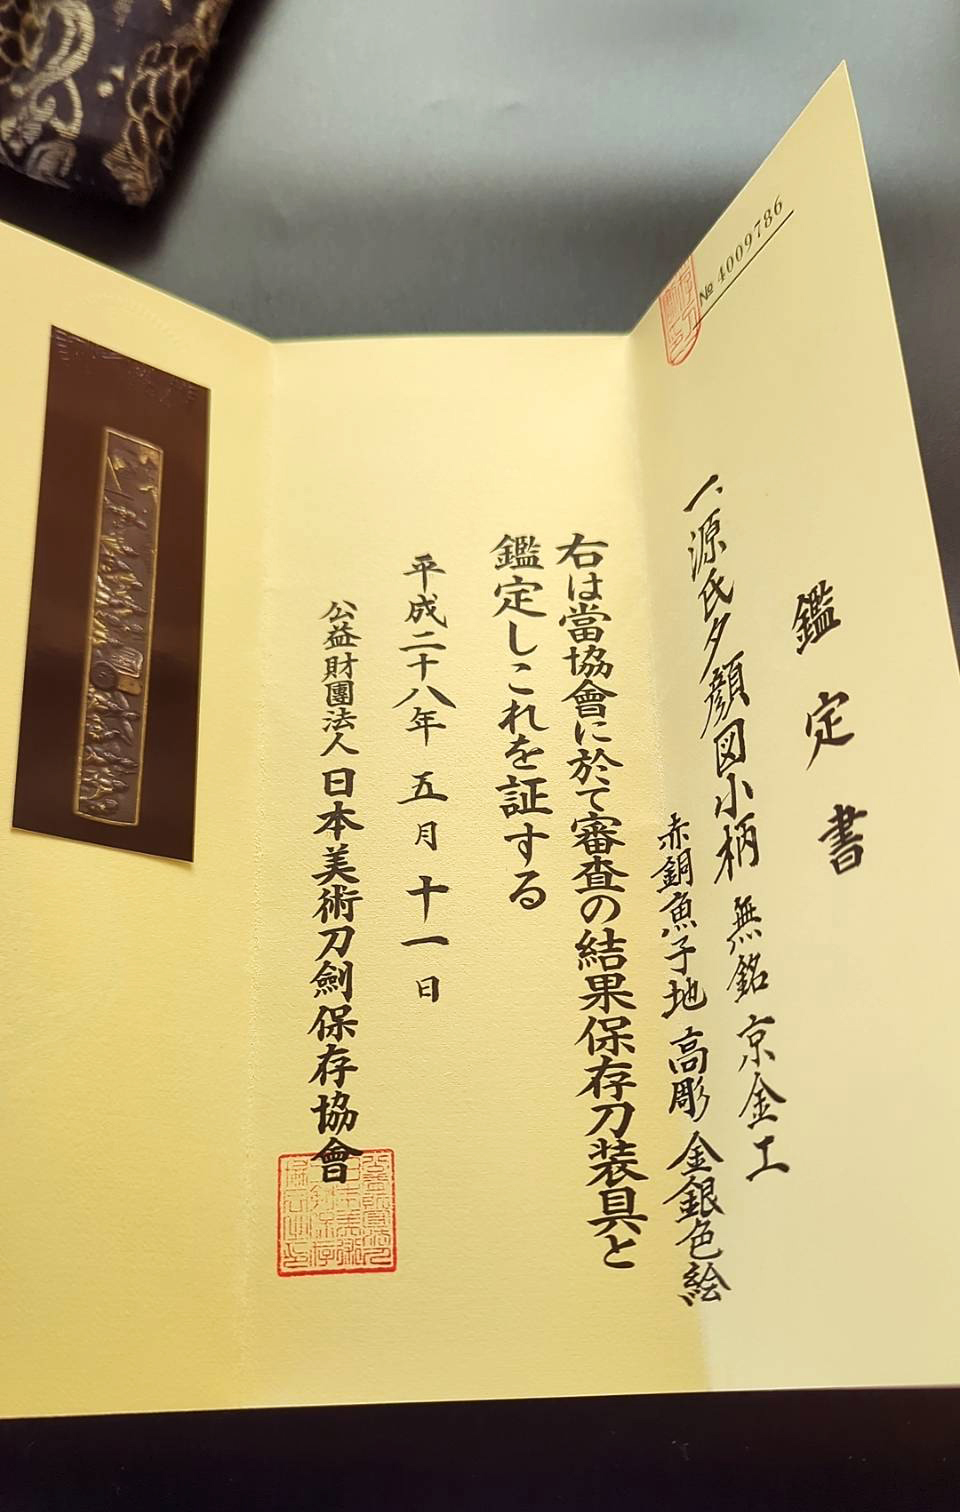 № 4009786
鑑定書
一、源氏夕顔図小柄 無銘 京金工
赤銅魚子地 高彫 金銀色絵
右は當協會に於て審査の結果保存刀装具と
鑑定しこれを証する
平成二十八年 五月 十一日
公益財團法人 日本美術刀劍保存協會